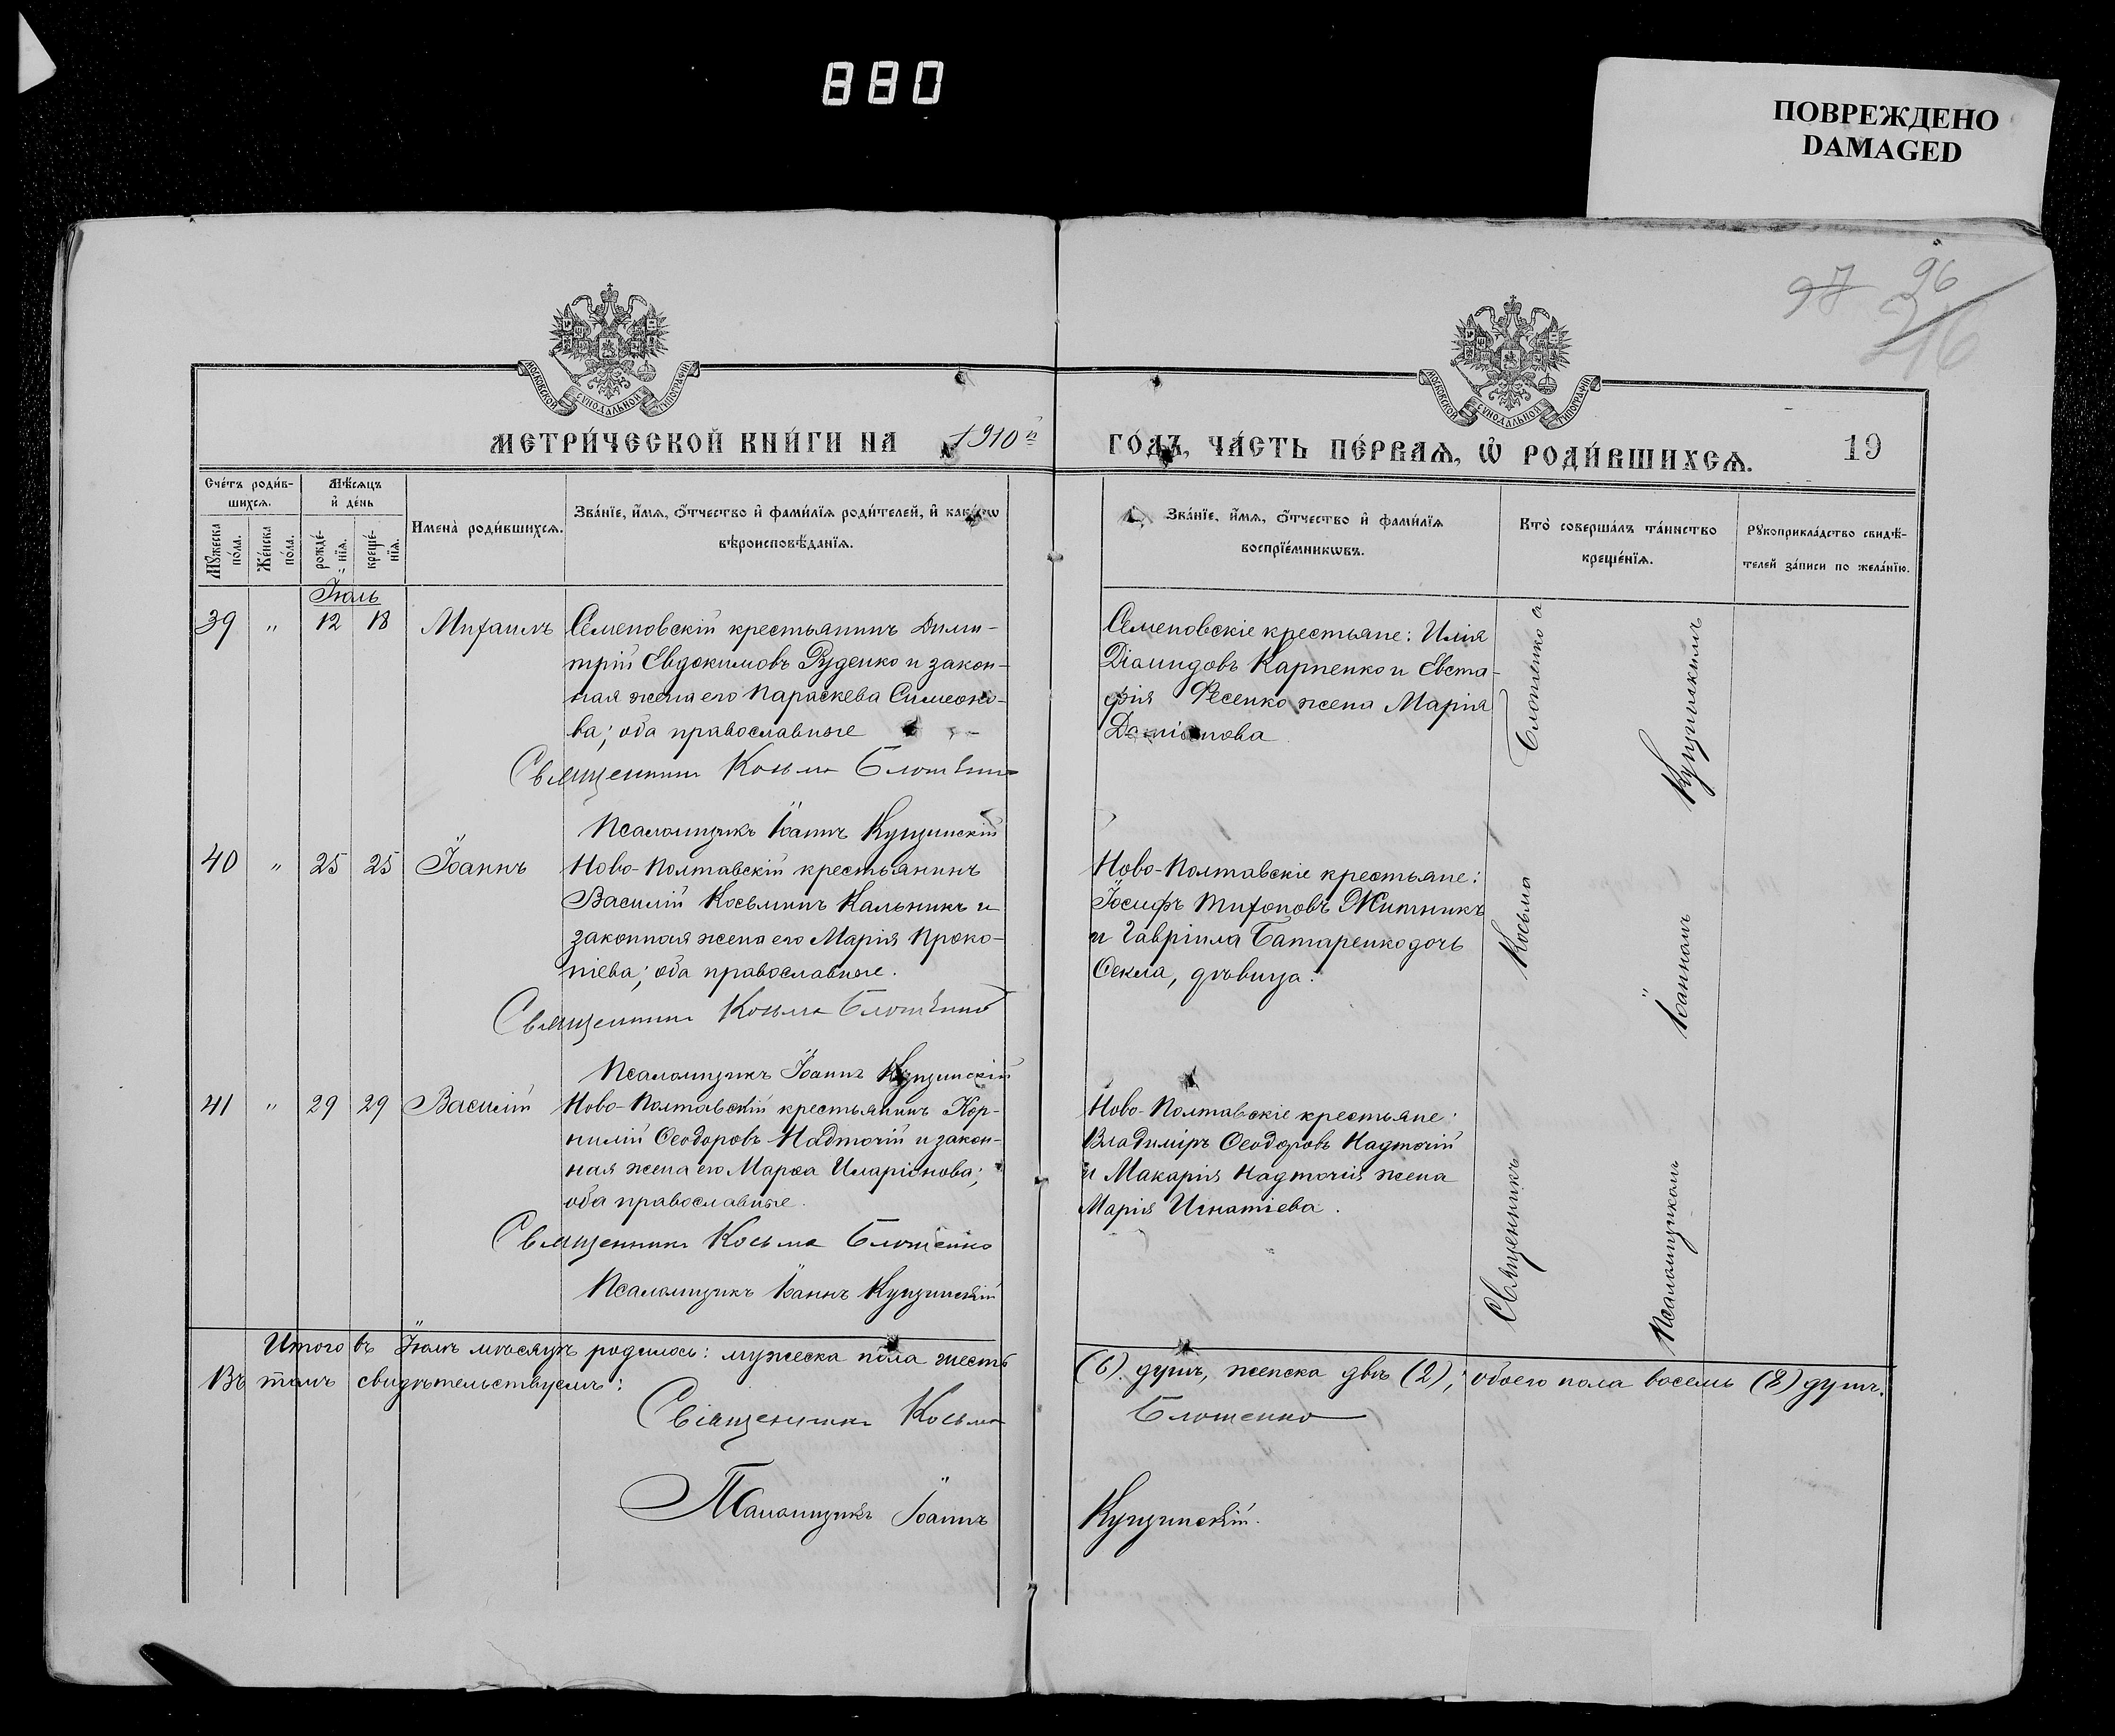 880
ПОВРЕЖДЕНО
DAMAGED
97 96
216
МОСКОВСКОЙ СѴНОДАЛЬНОЙ ТИПОГРАФІИ
МОСКОВСКОЙ СѴНОДАЛЬНОЙ ТИПОГРАФІИ
МЕТРИ́ЧЕСКОЙ КНИ́ГИ НА 1910 й
ГО́ДЪ, ЧА́СТЬ ПЕ́РВАѦ, Ѿ РОДИ́ВШИХСѦ.
19
Сче́тъ роди́в-
шихсѧ.
Мꙋ́жеска
по́ла.
Же́нска
по́ла.
Мѣ́сѧцъ
и҆ де́нь
рожде́-
нїѧ.
креще́-
нїѧ.
Имена̀ роди́вшихсѧ.
Зва́нїе, и҆́мѧ, ѻ҆́тчество и҆ фами́лїѧ роди́телей, и҆ како́гѡ
вѣроисповѣ́данїѧ.
Зва́нїе, и҆́мѧ, ѻ҆́тчество и҆ фами́лїѧ
воспрїе́мникѡвъ.
Кто̀ соверша́лъ та́инство
креще́нїѧ.
Рꙋкоприкла́дство свидѣ́-
телей за́писи по жела́нїю.
Іюль
39 " 12 18 Михаилъ
Семеновскій крестьянинъ Дими-
трій Евдокимовъ Руденко и закон-
ная жена его Параскева Симеоно-
ва; оба православные
Священникъ Козьма Блошенко
Псаломщикъ Іоаннъ Купчинскій
Семеновскіе крестьяне: Илія
Діомидовъ Карпенко и Евста-
фія Фесенко жена Марія
Даміанова
40 " 25 25 Іоаннъ
Ново-Полтавскій крестьянинъ
Василій Косьминъ Кальникъ и
законная жена его Марія Проко-
піева; оба православные.
Священникъ Козьма Блошенко
Псаломщикъ Іоаннъ Купчинскій
Ново-Полтавскіе крестьяне:
Іосифъ Тихоновъ Житникъ
и Гавріила Батаренко дочь
Ѳекла, дѣвица.
41 " 29 29 Василій
Ново-Полтавскій крестьянинъ Кор-
нилій Ѳеодоровъ Надточій и закон-
ная жена его Марѳа Иларіонова;
оба православные.
Священникъ Косьма Блошенко
Псаломщикъ Іоаннъ Купчинскій
Ново-Полтавскіе крестьяне:
Владиміръ Ѳеодоровъ Надточій
и Макарія Надточія жена
Марія Игнатіева.
Священникъ Косьма Блошенко съ
Псаломщикомъ Іоанномъ Купчинскимъ
Итого въ Іюлѣ мѣсяцѣ родилось: мужеска пола шесть (6) душъ, женска двѣ (2); обоего пола восемь (8) душъ.
Въ томъ свидѣтельствуемъ:
Священникъ Косьма Блошенко
Псаломщикъ Іоаннъ Купчинскій.